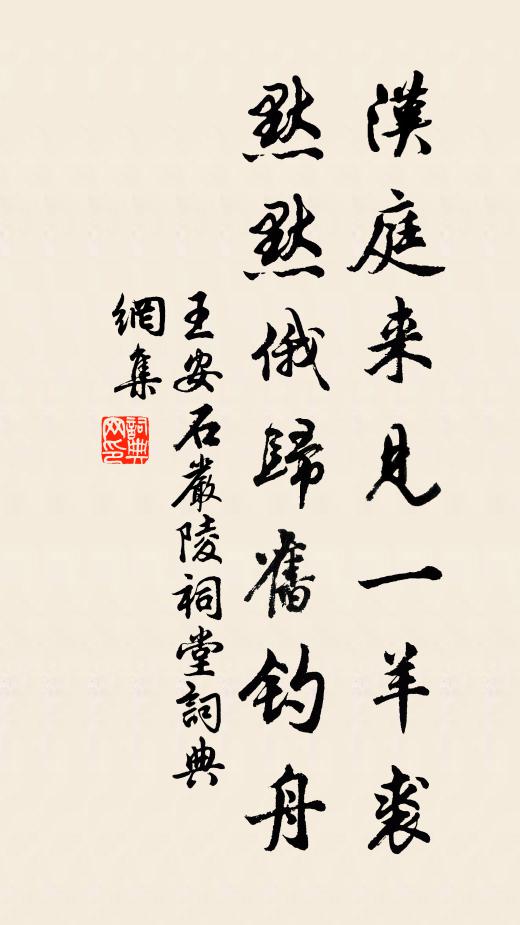 漢庭来見一羊裘
黙黙俄歸舊釣舟
王安石嚴陵祠堂詞典
網集
詞典網印